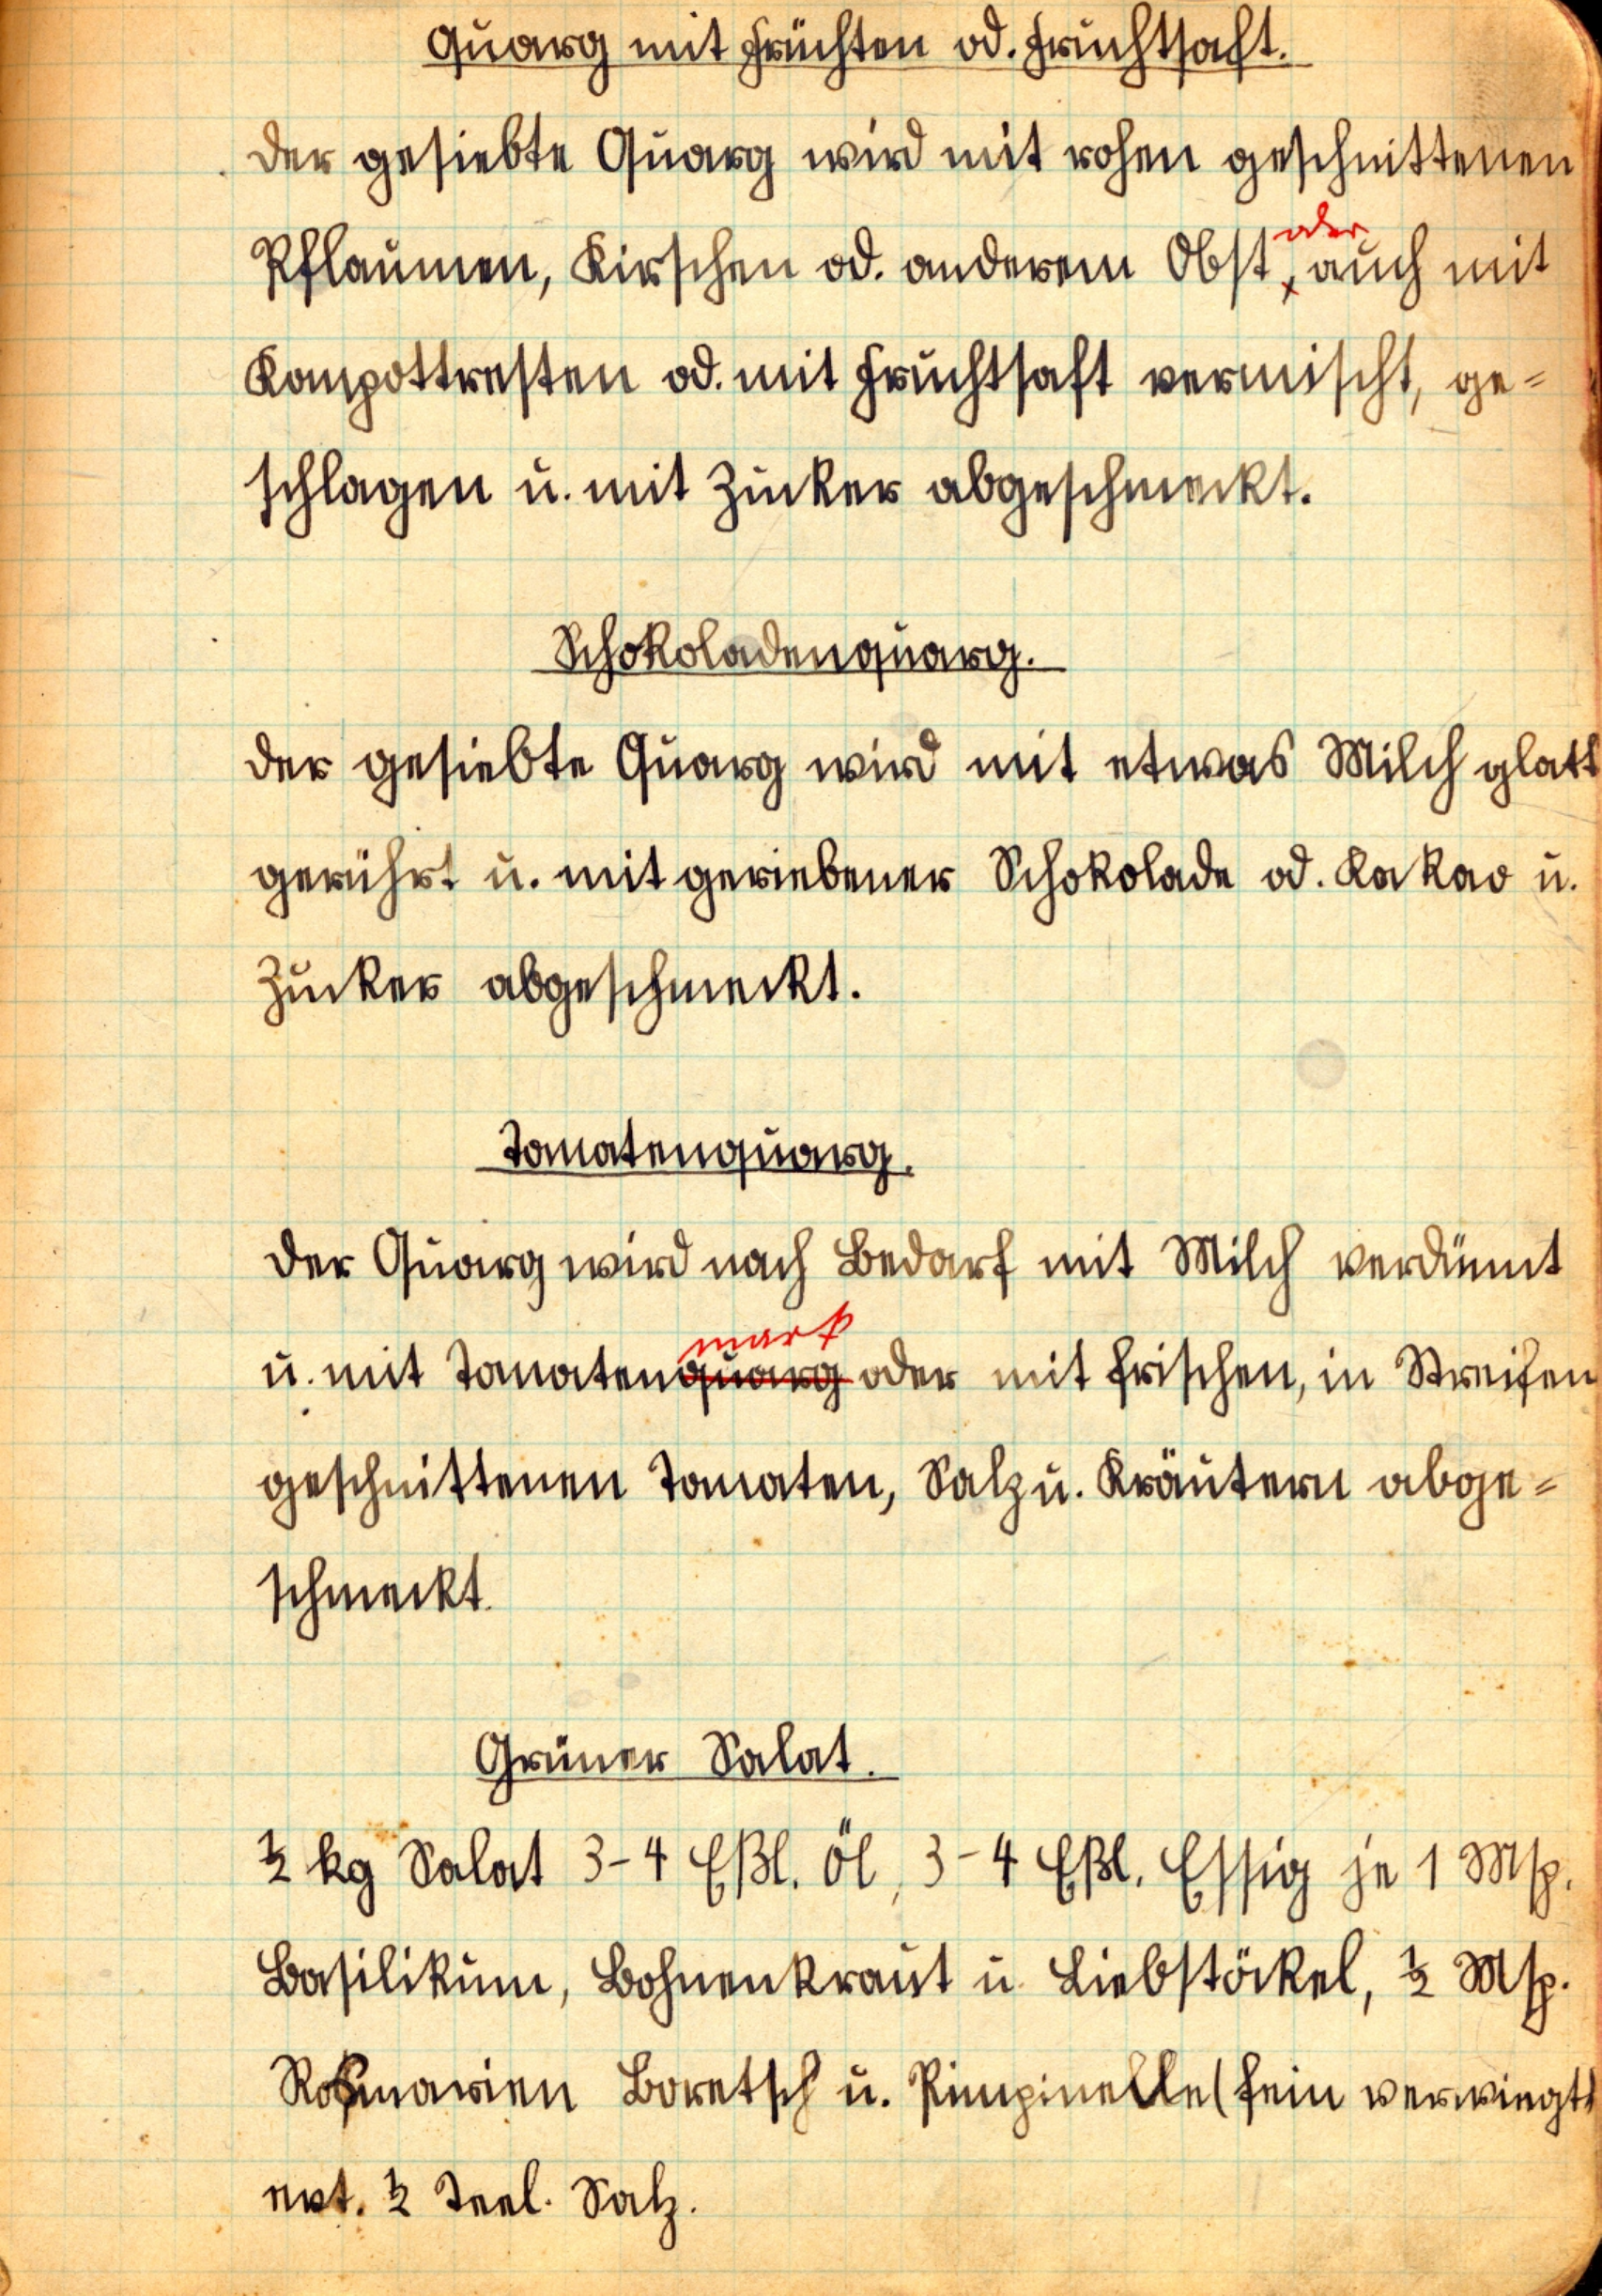 Quarg mit Früchten od. Fruchtsaft.
Der gesiebte Quarg wird mit rohen geschnittenen
oder
Pflaumen, Kirschen od. anderem Obst, auch mit
Kompottresten od. mit Fruchtsaft vermischt, ge=
schlagen u. mit Zucker abgeschmeckt.
Schokoladenquarg.
Der gesiebte Quarg wird mit etwas Milch glatt
gerührt u. mit geriebener Schokolade od. Kakao u.
Zucker abgeschmeckt.
Tomatenquarg.
Der Quarg wird nach Bedarf mit Milch verdünnt
mark
u. mit Tomatenquarg oder mit frischen, in Streifen
geschnittenen Tomaten, Salz u. Kräutern abge=
schmeckt.
Grüner Salat.
½ kg Salat 3-4 Eßl. Öl, 3-4 Eßl. Essig je 1 Msp.
Basilikum, Bohnenkraut u. Liebstöckel, ½ Msp.
Rosmarien Boretsch u. Pimpinelle (fein verwiegt)
evt. ½ Teel. Salz.